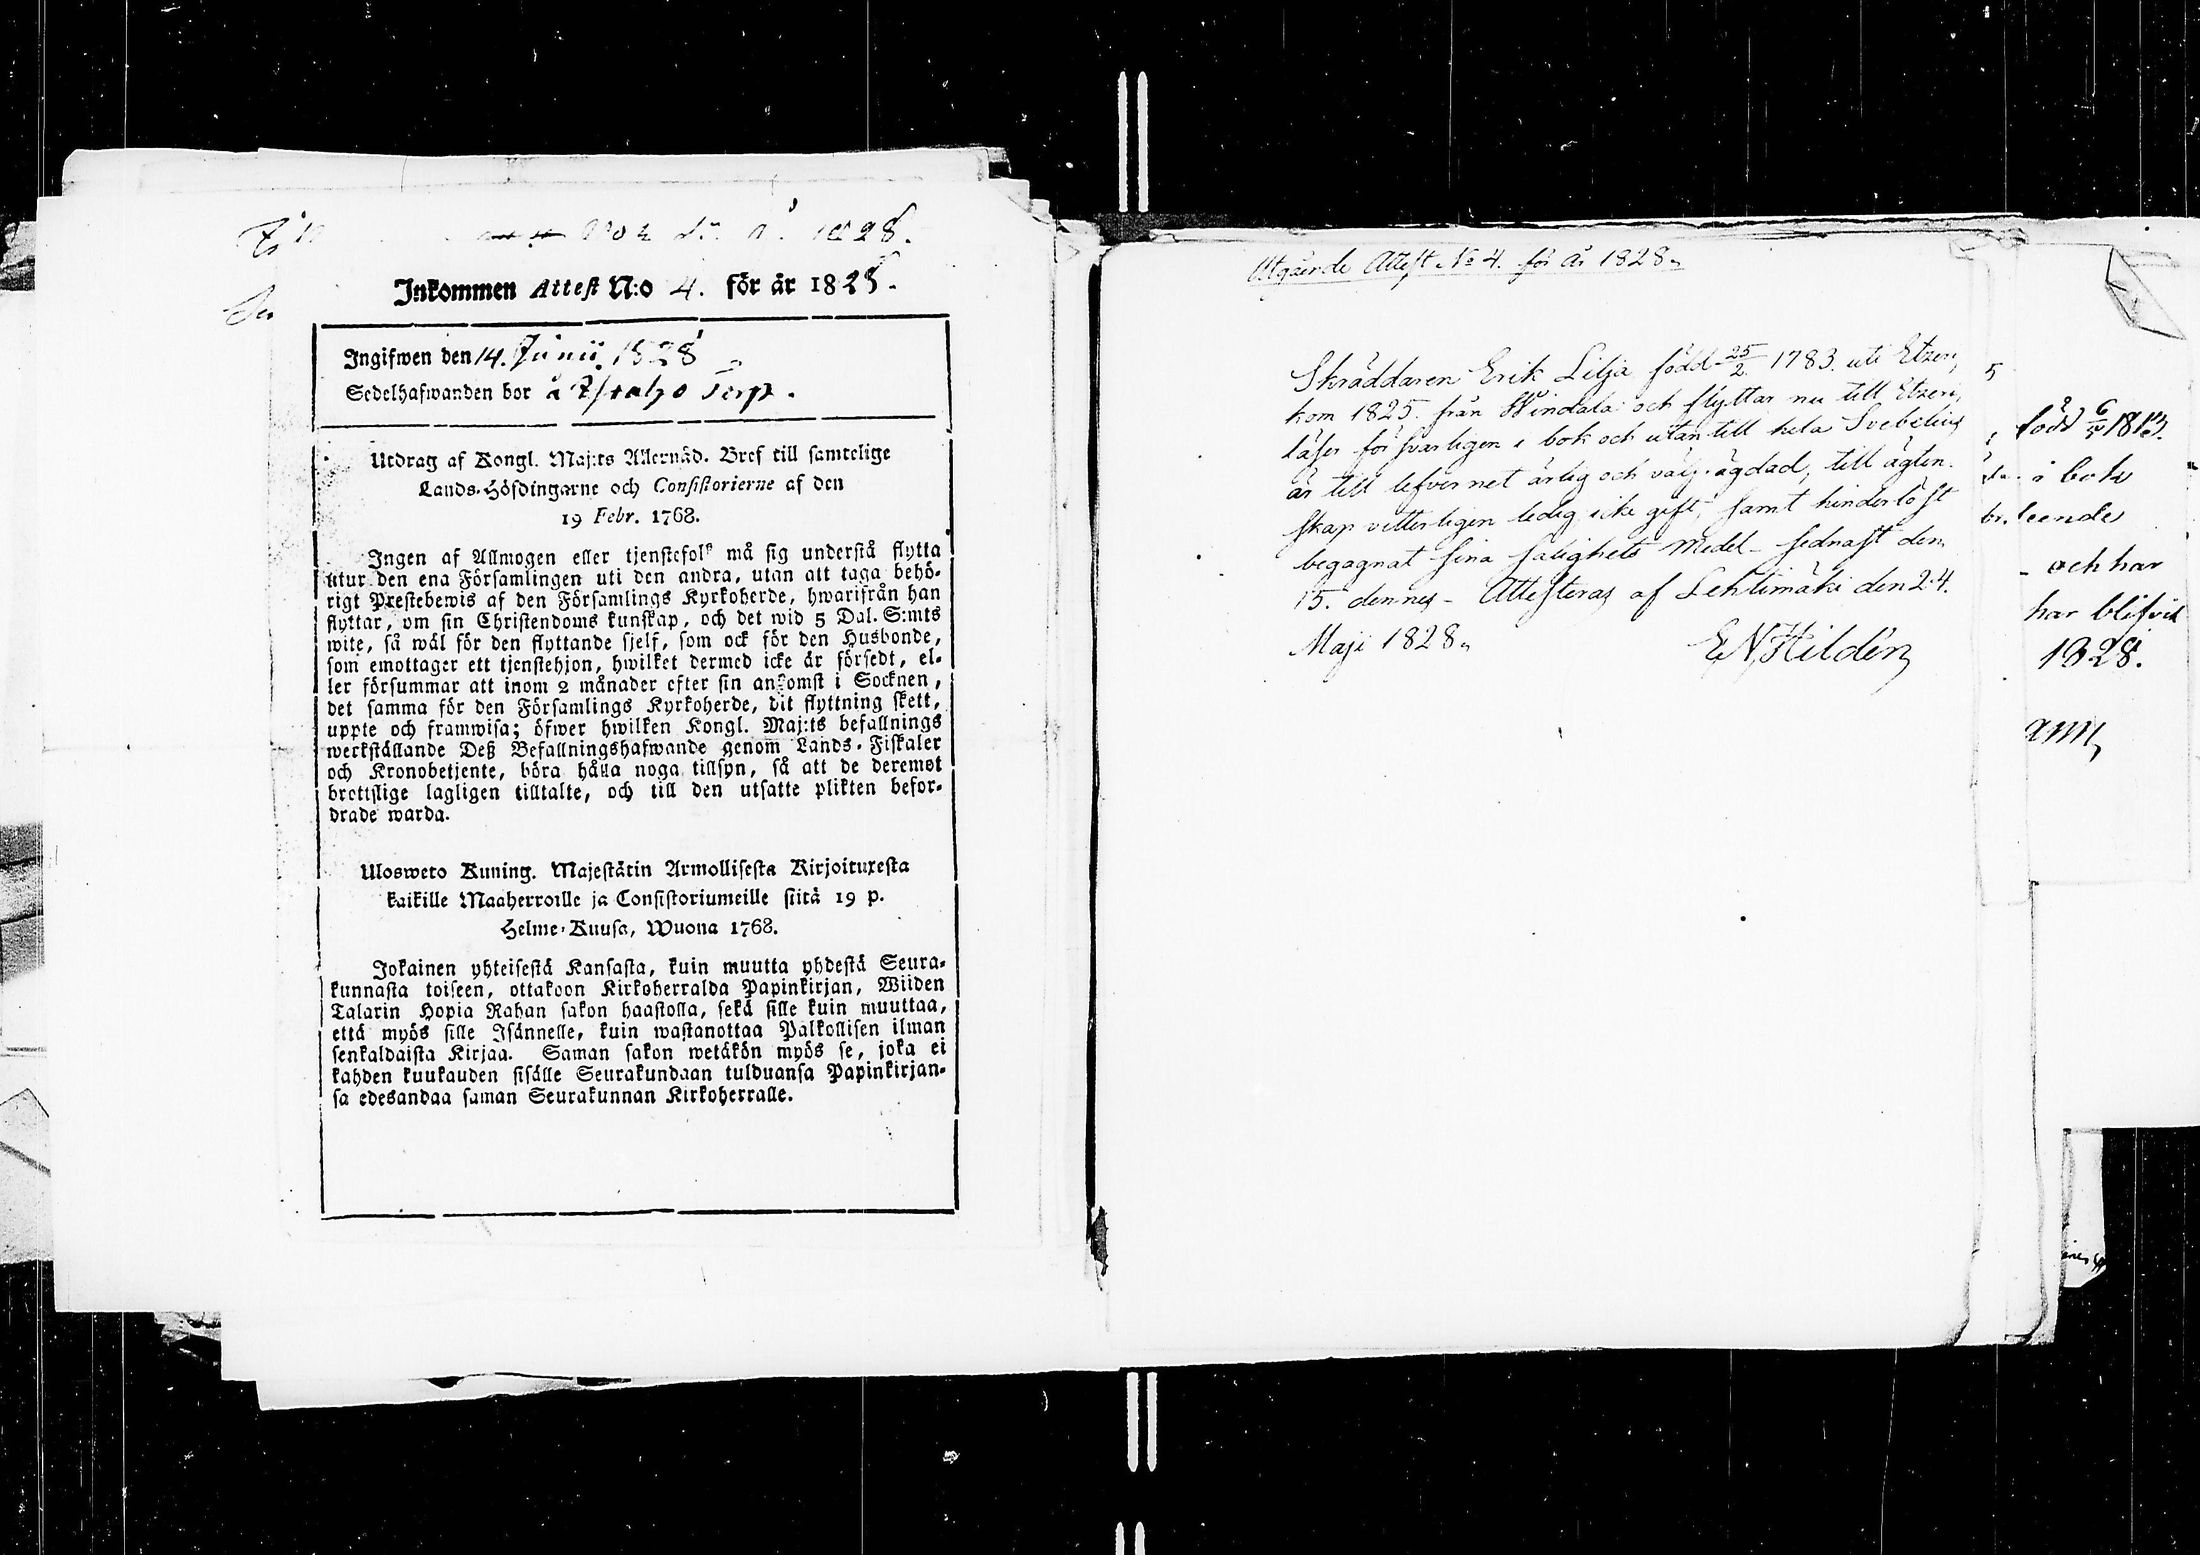 No 4 1828.
Inkommen Attest N:o 4. för år 1828.
Ingifwen den 14. Junii. 1828
Sedelhafwanden bor å Torp.
Utdrag af Kongl. Maj:ts Allernåd. Bref till samtelige
Lands-Höfdingarne och Consistorierne af den
19 Febr. 1768.
Ingen af Allmogen eller tjenstefolk må sig understå flytta
utur den ena Församlingen uti den andra, utan att taga behö-
rigt Prestebewis af den Församlings Kyrkoherde, hwarifrån han
flyttar, om sin Christendoms kunskap, och det wid 5 Dal. S:mts
wite, så wäl för den flyttande sjelf, som ock för den Husbonde,
som emottager ett tjenstehjon, hwilket dermed icke är försedt, el-
ler försummar att inom 2 månader efter sin ankomst i Socknen,
det samma för den Församlings Kyrkoherde, dit flyttning skett,
uppte och framwisa; öfwer hwilken Kongl. Maj:ts befallnings
werkställande Deß Befallningshafwande genom Lands-Fiskaler
och Kronobetjente, böra hålla noga tillsyn, så att de deremot
brottslige lagligen tilltalte, och till den utsatte plikten befor-
drade warda.
Ulosweto Kuning. Majestätin Armollisesta Kirjoituxesta
kaikille Maaherroille ja Consistoriumeille siitä 19 p.
Helme-Kuusa, Wuona 1768.
Jokainen yhteisestä Kansasta, kuin muutta yhdestä Seura-
kunnasta toiseen, ottakoon Kirkoherralda Papinkirjan, Wiiden
Talarin Hopia Rahan sakon haastolla, sekä sille kuin muuttaa,
että myös sille Isännelle, kuin wastanottaa Palkollisen ilman
senkaldaista Kirjaa. Saman sakon wetäkön myös se, joka ei
kahden kuukauden sisälle Seurakundaan tulduansa Papinkirjan-
sa edesandaa saman Seurakunnan Kirkoherralle.
Utgående Attest No 4. för År 1828.
Skräddaren Erik Lilja född 25/2 1783. uti Etzeri,
kom 1825. från Windala och flyttar nu till Etzeri,
läser försvarligen i bok och utan till hela Svebelius
är till lefvernet ärlig och väl ägdad, till ägten-
skap vetterligen ledig icke gift, samt hinderlöst
begagnat sina salighets Medel sednast den
15. dennes - Attesteras af Lehtimäki den 24.
Maji 1828.
E N Hildén
född 6/5 1813.
i bok
leende
och har
har blifvit
1828.